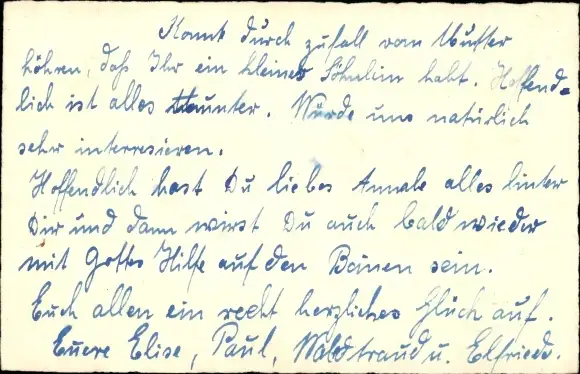 Konnt durch zufall vom Mutter
höhren, daß Ihr ein kleines Söhnlein habt. Hoffend-
lich ist alles Munter. Würde uns natürlich
sehr interresieren.
Hoffendlich hast Du liebes Annale alles hinter
Dir und dann wirst Du auch bald wieder
mit Gottes Hilfe auf den Beinen sein.
Euch allen ein recht herzliches Glück auf.
Euere Elise, Paul, Waldtraud u. Elfriede.